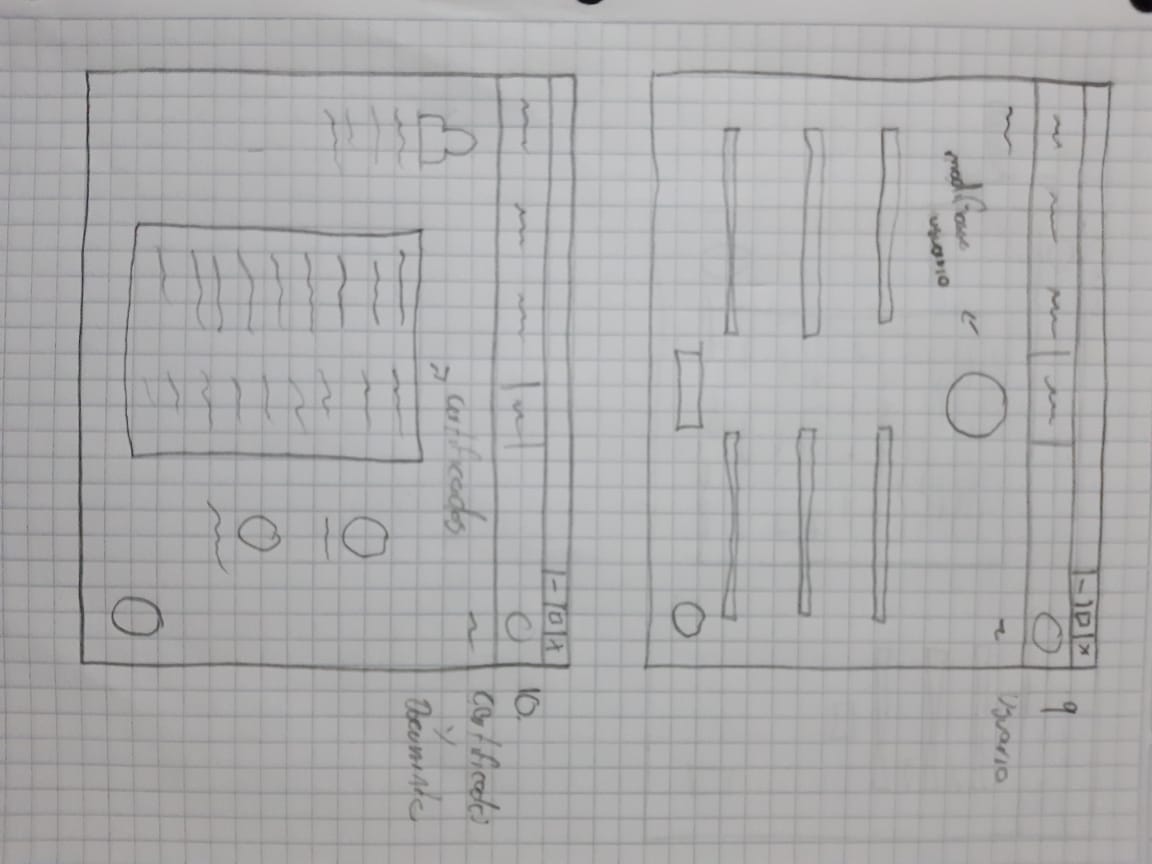 - □ x
9
Usuario
modificar
usuario
- □ x
10.
Certificados
y
Documentos
→ certificados